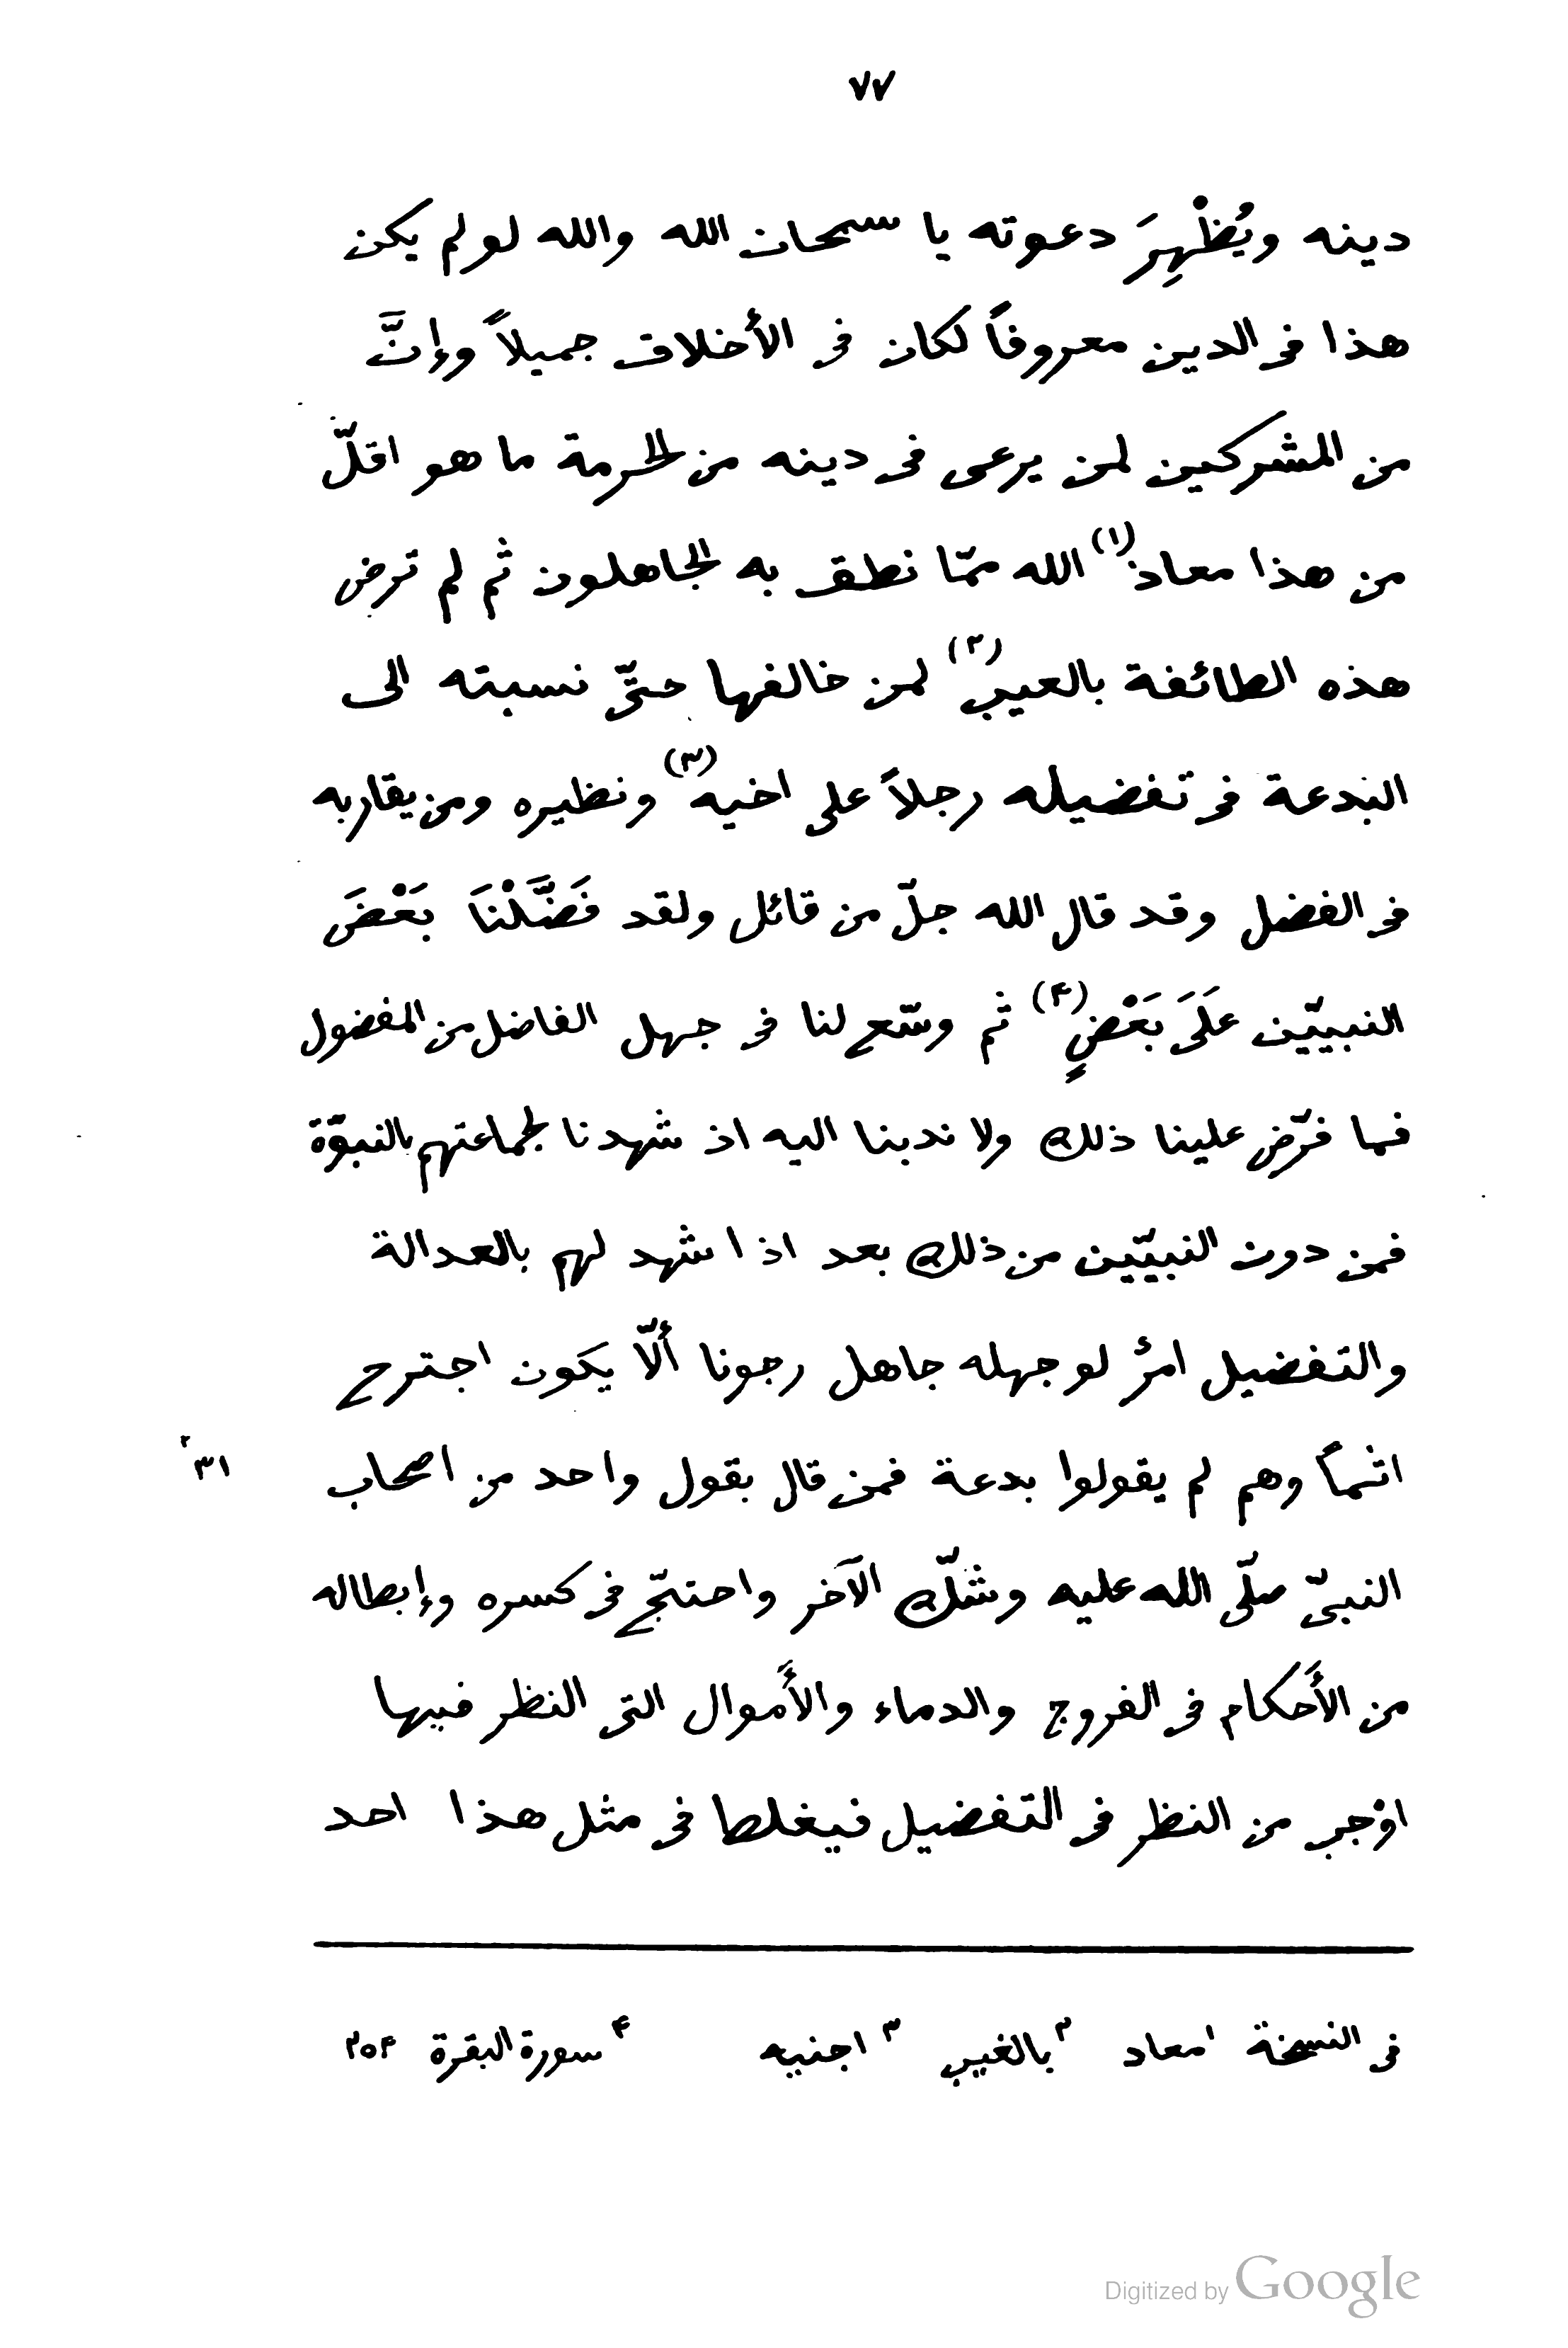 ٧٧
دينه ويُظْهِرَ دعوته يا سبحان الله والله لو لم يكن
هذا فى الدين معروفاً لكان فى الأخلاق جميلاً وإنَّ
من المشركين لمن يرعى فى دينه من الحرمة ما هو اقلّ
من هذا معاذ(١) الله ممّا نطق به الجاهلون ثم لم ترض
هذه الطائفة بالعيب(٢) لمن خالفها حتّى نسبته الى
البدعة فى تفضيله رجلاً على اخيه(٣) ونظيره ومن يقاربه
فى الفضل وقد قال الله جلّ من قائل ولقد فَضَّلْنَا بَعْضَ
النبييّن عَلَىَ بَعْضٍ(۴) ثم وسّع لنا فى جهل الفاضل من المفضول
فما فرّض علينا ذلك ولا ندبنا اليه اذ شهدنا لجماعتهم بالنبوّة
فمن دون النبييّن من ذلك بعد اذا شهد لهم بالعدالة
والتفضيل امرٌ لو جهله جاهل رجونا ألّا يكون اجترح
اثماً وهم لم يقولوا بدعة فمن قال بقول واحد من اصحاب
٣١٢
النبىّ صلّى الله عليه وشكّ الآخر واحتجّ فى كسره وإبطاله
من الأحكام فى الفروج والدماء والأموال التى النظر فيها
اوْجب من النظر فى التفضيل فيغلط فى مثل هذا احد
فى النسخة ١ معاد ٢ بالغيب ٣ اجنبيه ۴ سورة البقرة ٢٥۴
Digitized by Google